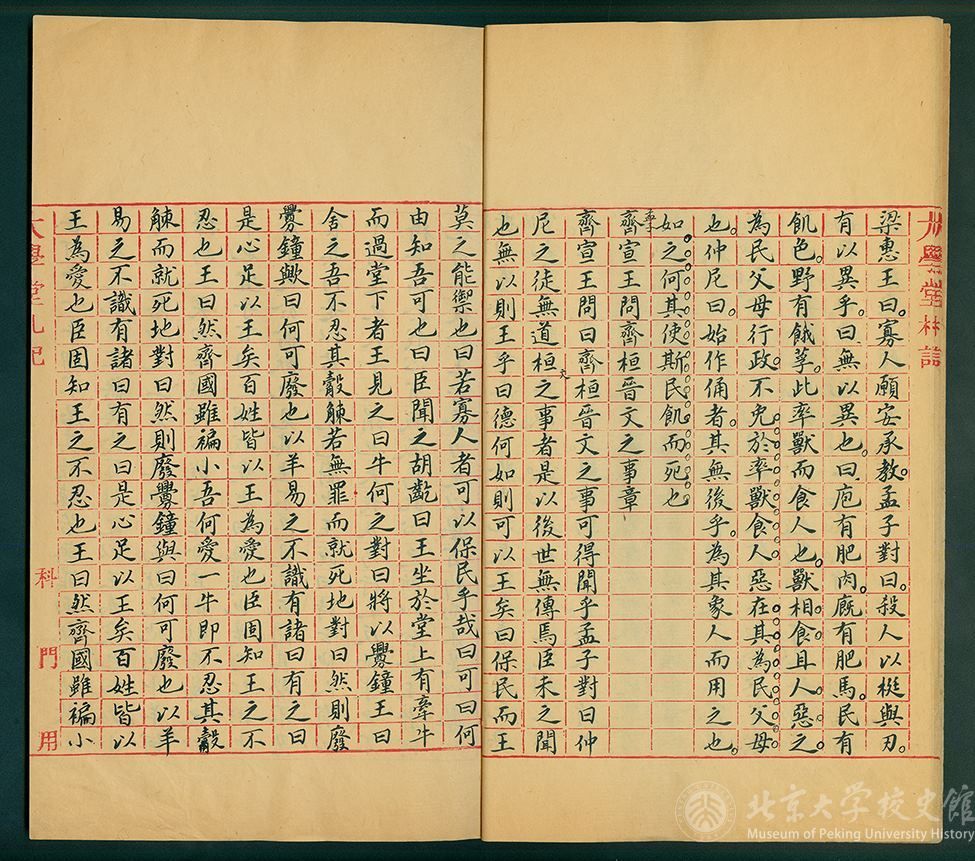 梁惠王曰。寡人願安承教。孟子對曰。殺人以梃與刃。
有以異乎。曰。無以異也。曰。庖有肥肉。廄有肥馬。民有
飢色。野有餓莩。此率獸而食人也。獸相食。且人惡之。
為民父母行政。不免於率獸食人。惡在其為民父母
也。仲尼曰。始作俑者。其無後乎。為其象人而用之也。
如之何其使斯民飢而死也
齊宣王問齊桓晉文之事章
齊宣王問曰齊桓晉文之事可得聞乎孟子對曰仲
尼之徒無道桓文之事者是以後世無傳焉臣未之聞
也無以則王乎曰德何如則可以王矣曰保民而王
莫之能禦也曰若寡人者可以保民乎哉曰可曰何
由知吾可也曰臣聞之胡齕曰王坐於堂上有牽牛
而過堂下者王見之曰牛何之對曰將以釁鐘王曰
舍之吾不忍其觳觫若無罪而就死地對曰然則廢
釁鐘歟曰何可廢也以羊易之不識有諸曰有之曰
是心足以王矣百姓皆以王為愛也臣固知王之不
忍也王曰然齊國雖褊小吾何愛一牛即不忍其觳
觫而就死地對曰然則廢釁鐘與曰何可廢也以羊
易之不識有諸曰有之曰是心足以王矣百姓皆以
王為愛也臣固知王之不忍也王曰然齊國雖褊小
大學堂札記 科 門 用
北京大学校史館
Museum of Peking University History